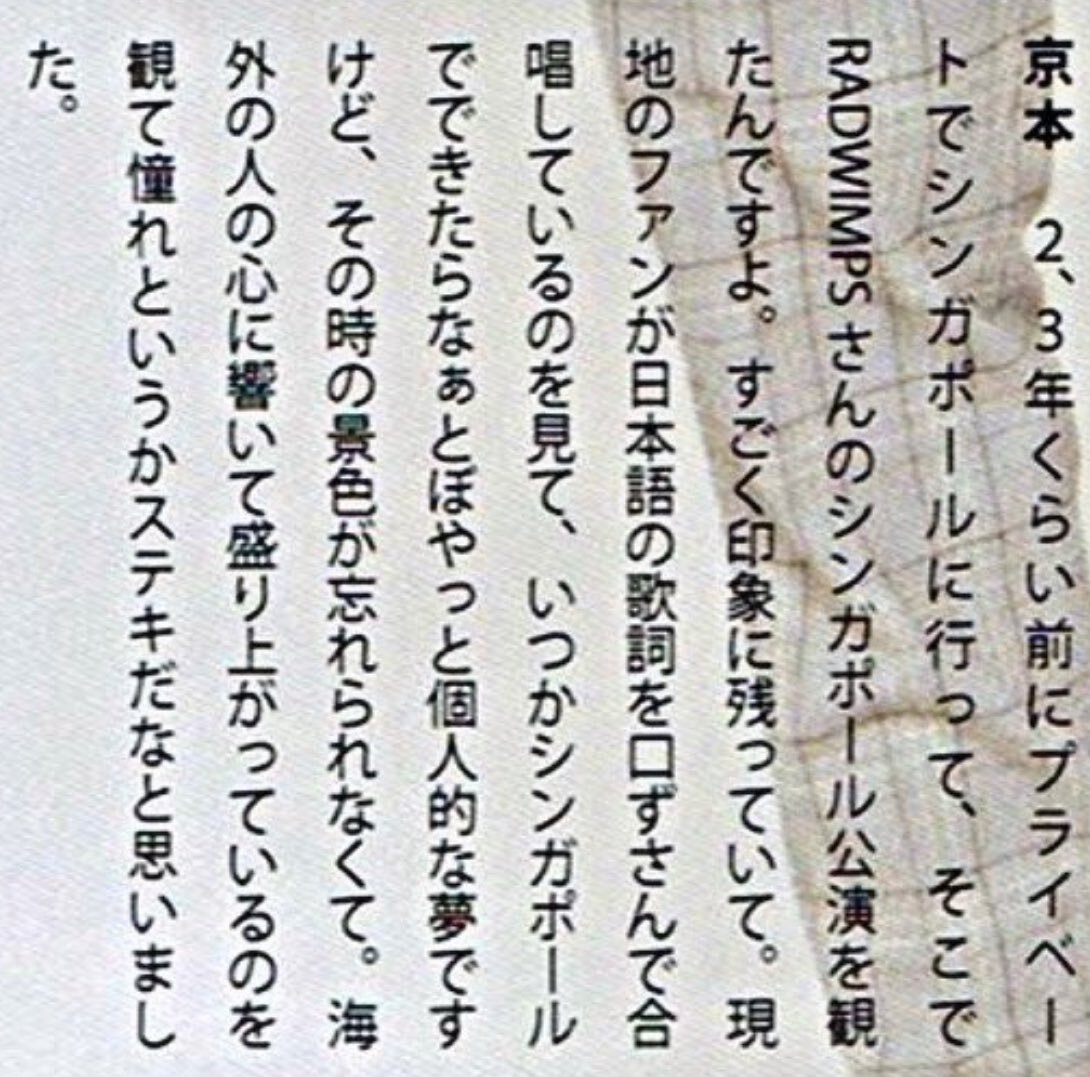 京本　2、3年くらい前にプライベー
トでシンガポールに行って、そこで
RADWIMPSさんのシンガポール公演を観
たんですよ。すごく印象に残っていて。現
地のファンが日本語の歌詞を口ずさんで合
唱しているのを見て、いつかシンガポール
でできたらなぁとぼやっと個人的な夢です
けど、その時の景色が忘れられなくて。海
外の人の心に響いて盛り上がっているのを
観て憧れというかステキだなと思いまし
た。